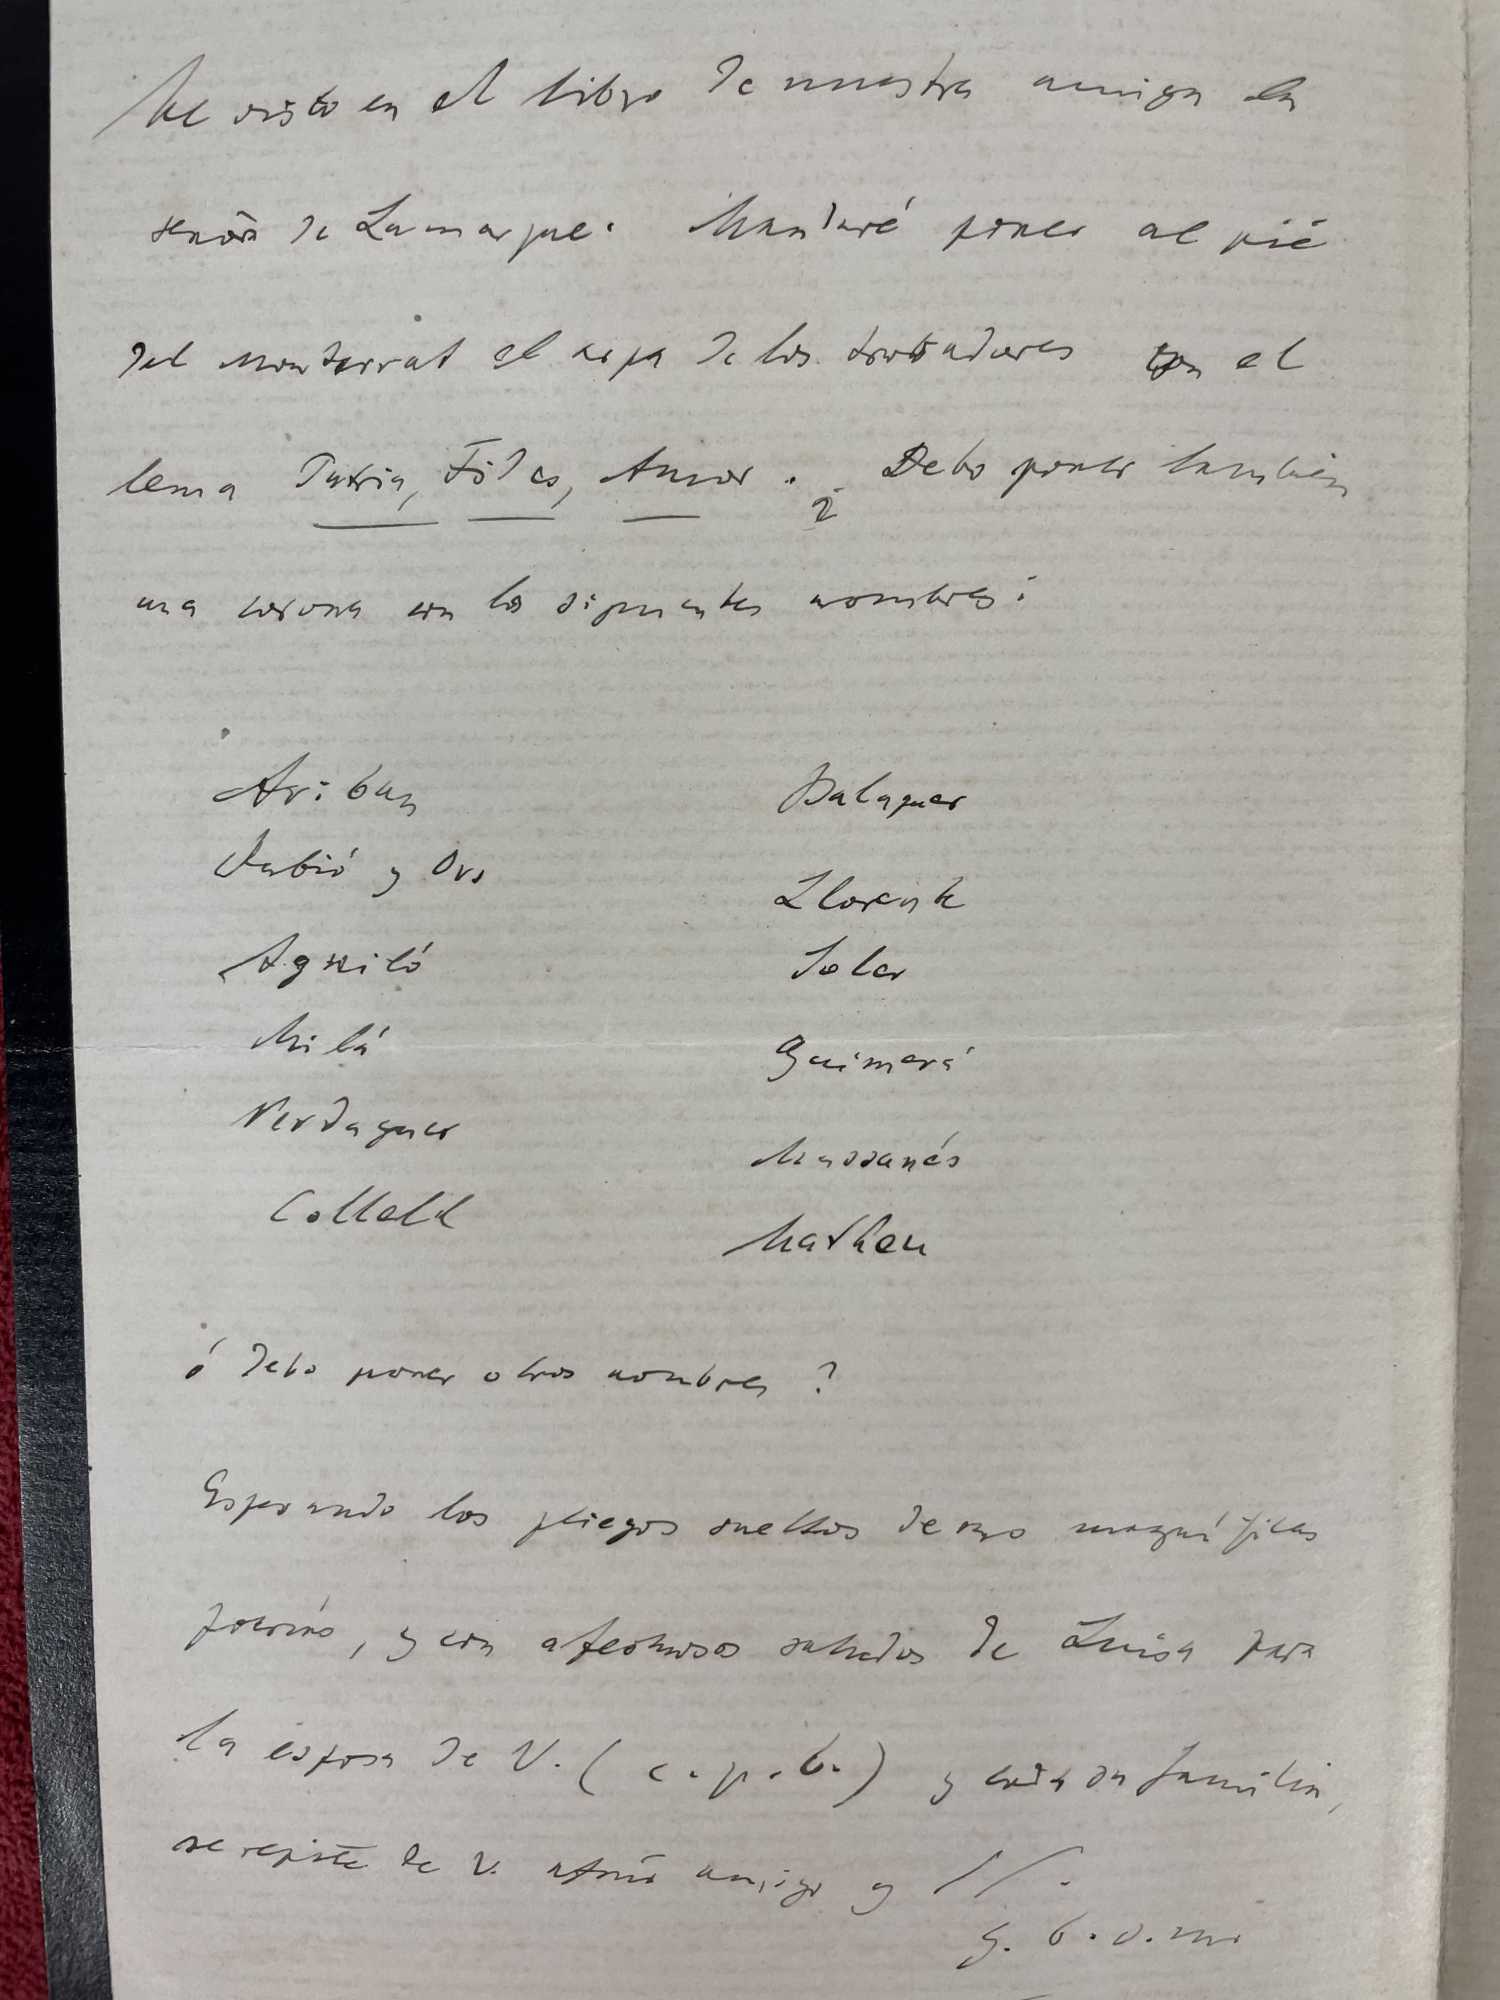 he visto en el libro de nuestra amiga la
señora de Lamarque. Mandaré poner al pié
del Montserrat el arpa de los trovadores con el
lema Patria, Fides, Amor. ¿Debo poner tambien
una corona con los siguientes nombres:
Aribau
Balaguer
Rubió y Ors
Llorente
Aguiló
Soler
Milá
Guimerá
Verdaguer
Massanés
Collell
Matheu
ó debo poner otros nombres?
Esperando los pliegos sueltos de sus magníficas
poesías, y con afectuosos saludos de Luisa para
la esposa de V. (c. p. b.) y toda su familia,
se repite de V. afmo amigo y
q. b. s. m.